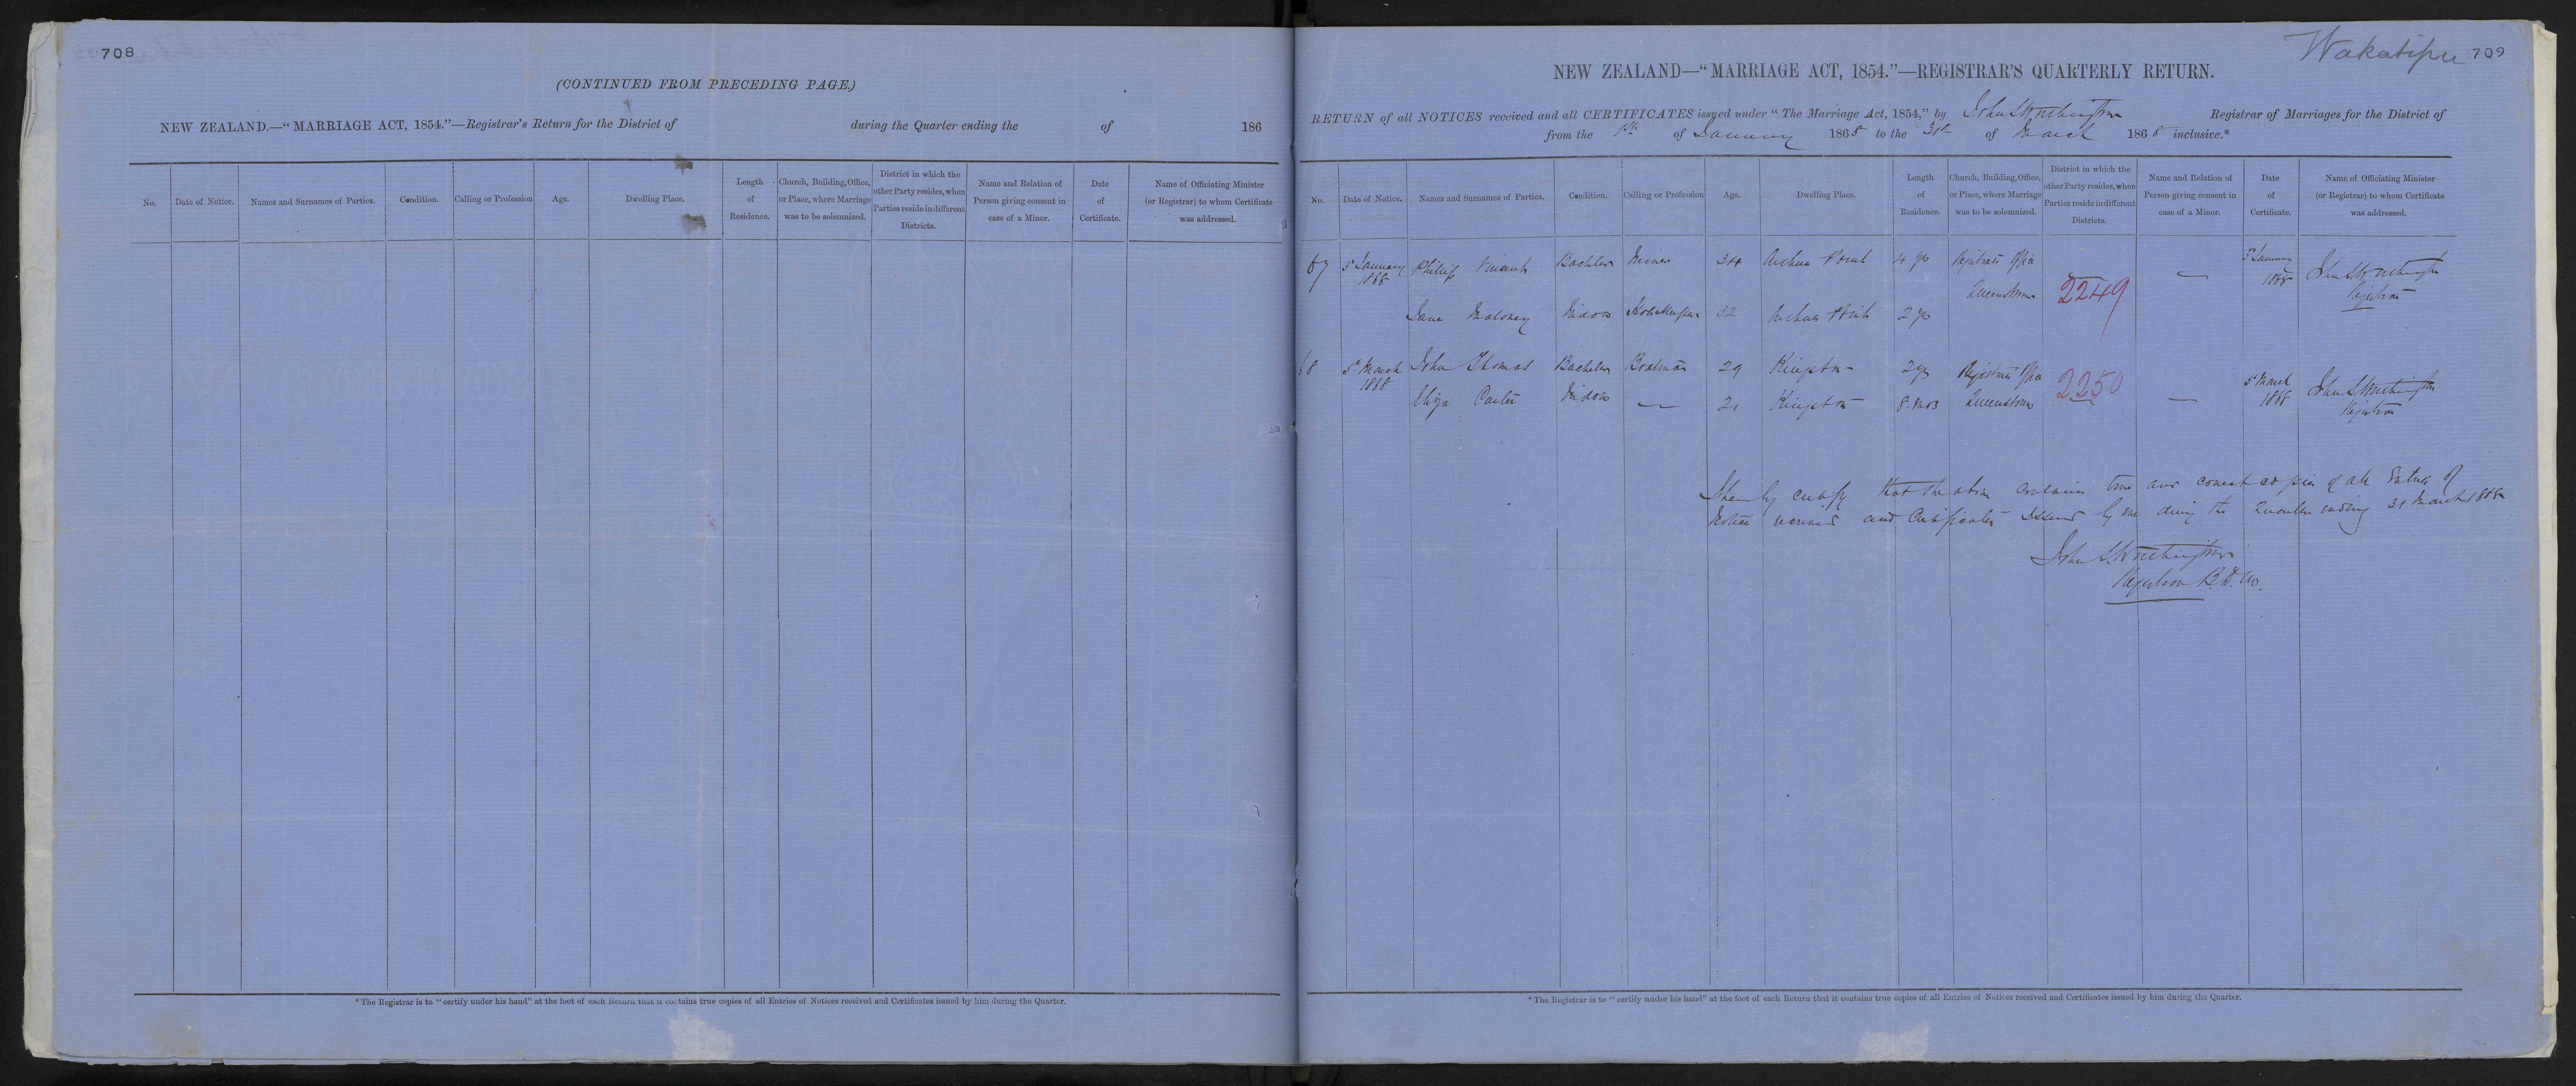 708
(CONTINUED FROM PRECEDING PAGE.)
NEW ZEALAND.—"MARRIAGE ACT, 1854."—Registrar's Return for the District of during the Quarter ending the of 186
No.
Date of Notice.
Names and Surnames of Parties.
Condition.
Calling or Profession
Age.
Dwelling Place.
Length
of
Residence.
Church, Building, Office,
or Place, where Marriage
was to be solemnized.
District in which the
other Party resides, when
Parties reside in different
Districts.
Name and Relation of
Person giving consent in
case of a Minor.
Date
of
Certificate.
Name of Officiating Minister
(or Registrar) to whom Certificate
was addressed.
* The Registrar is to "certify under his hand" at the foot of each Return that it contains true copies of all Entries of Notices received and Certificates issued by him during the Quarter.
Wakatipu 709
NEW ZEALAND—"MARRIAGE ACT, 1854."—REGISTRAR'S QUARTERLY RETURN.
RETURN of all NOTICES received and all CERTIFICATES issued under "The Marriage Act, 1854," by John S Worthington Registrar of Marriages for the District of
from the 1st of January 1868 to the 31st of March 1868 inclusive.*
No.
Date of Notice.
Names and Surnames of Parties.
Condition.
Calling or Profession
Age.
Dwelling Place.
Length
of
Residence.
Church, Building, Office,
or Place, where Marriage
was to be solemnized.
District in which the
other Party resides, when
Parties reside in different
Districts.
Name and Relation of
Person giving consent in
case of a Minor.
Date
of
Certificate.
Name of Officiating Minister
(or Registrar) to whom Certificate
was addressed.
67 January Phillip Vincent Bachelor Miner Arthurs Point 4 yrs Registrars Office January John S Worthington
1868 Queenstown 2249 — 1868 Registrar
Jane Maloney Widow 32 Arthurs Point 2 yrs
68 5 March John Thomas Bachelor Boatman 29 Kingston 2 yrs Registrars Office 2250 5 March John S Worthington
1868 Eliza Carter Widow — 21 Kingston 8 mos Queenstown — 1868 Registrar
I hereby certify that the above contains true and correct copies of all Entries of
Notices received and Certificates issued by me during the Quarter ending 31 March 1868
John S. Worthington
Registrar B.D.M.
* The Registrar is to "certify under his hand" at the foot of each Return that it contains true copies of all Entries of Notices received and Certificates issued by him during the Quarter.